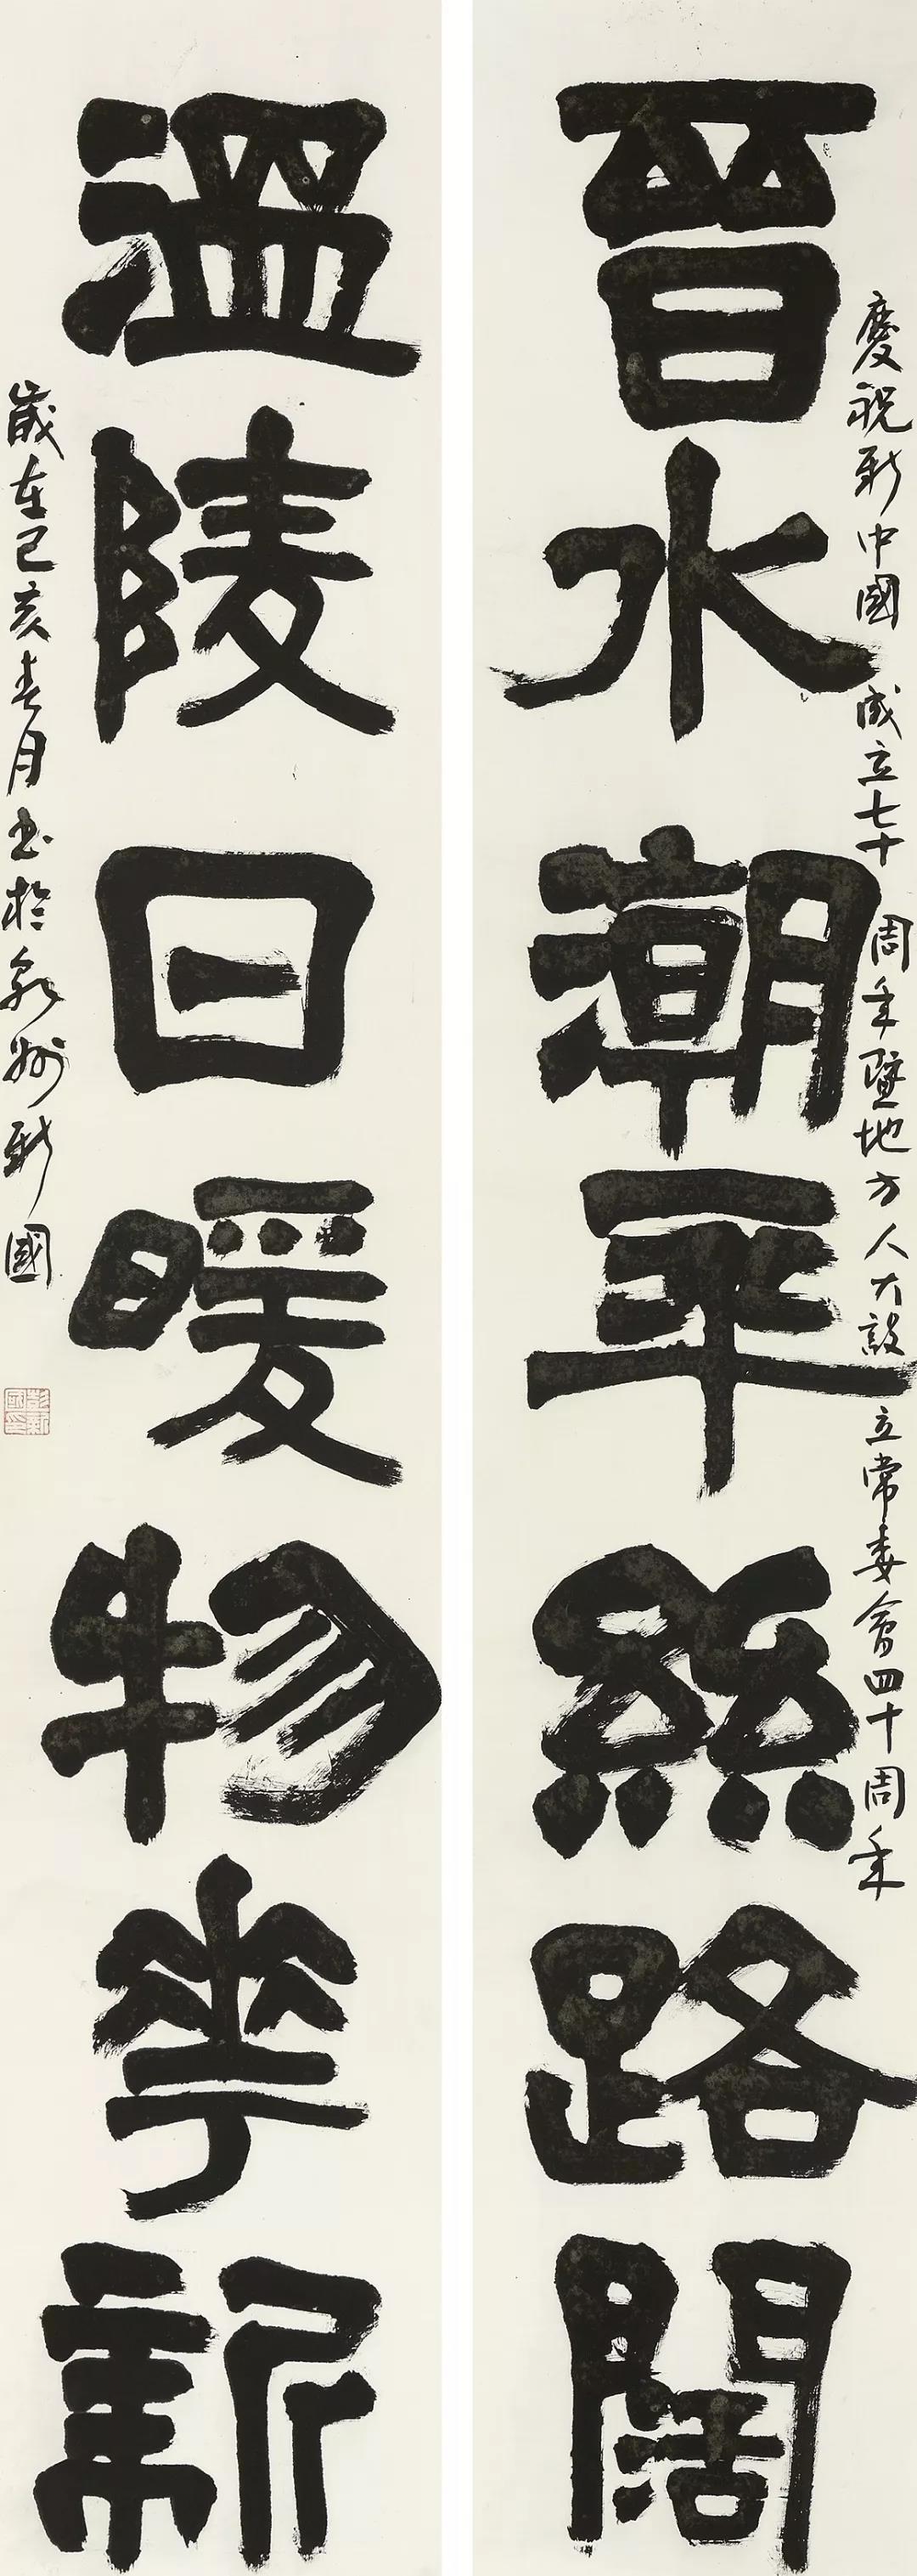 慶祝新中國成立七十周年暨地方人大設立常委會四十周年
晉水潮平絲路闊
溫陵日暖物華新
歲在己亥春月書於泉州新國
彭新國印